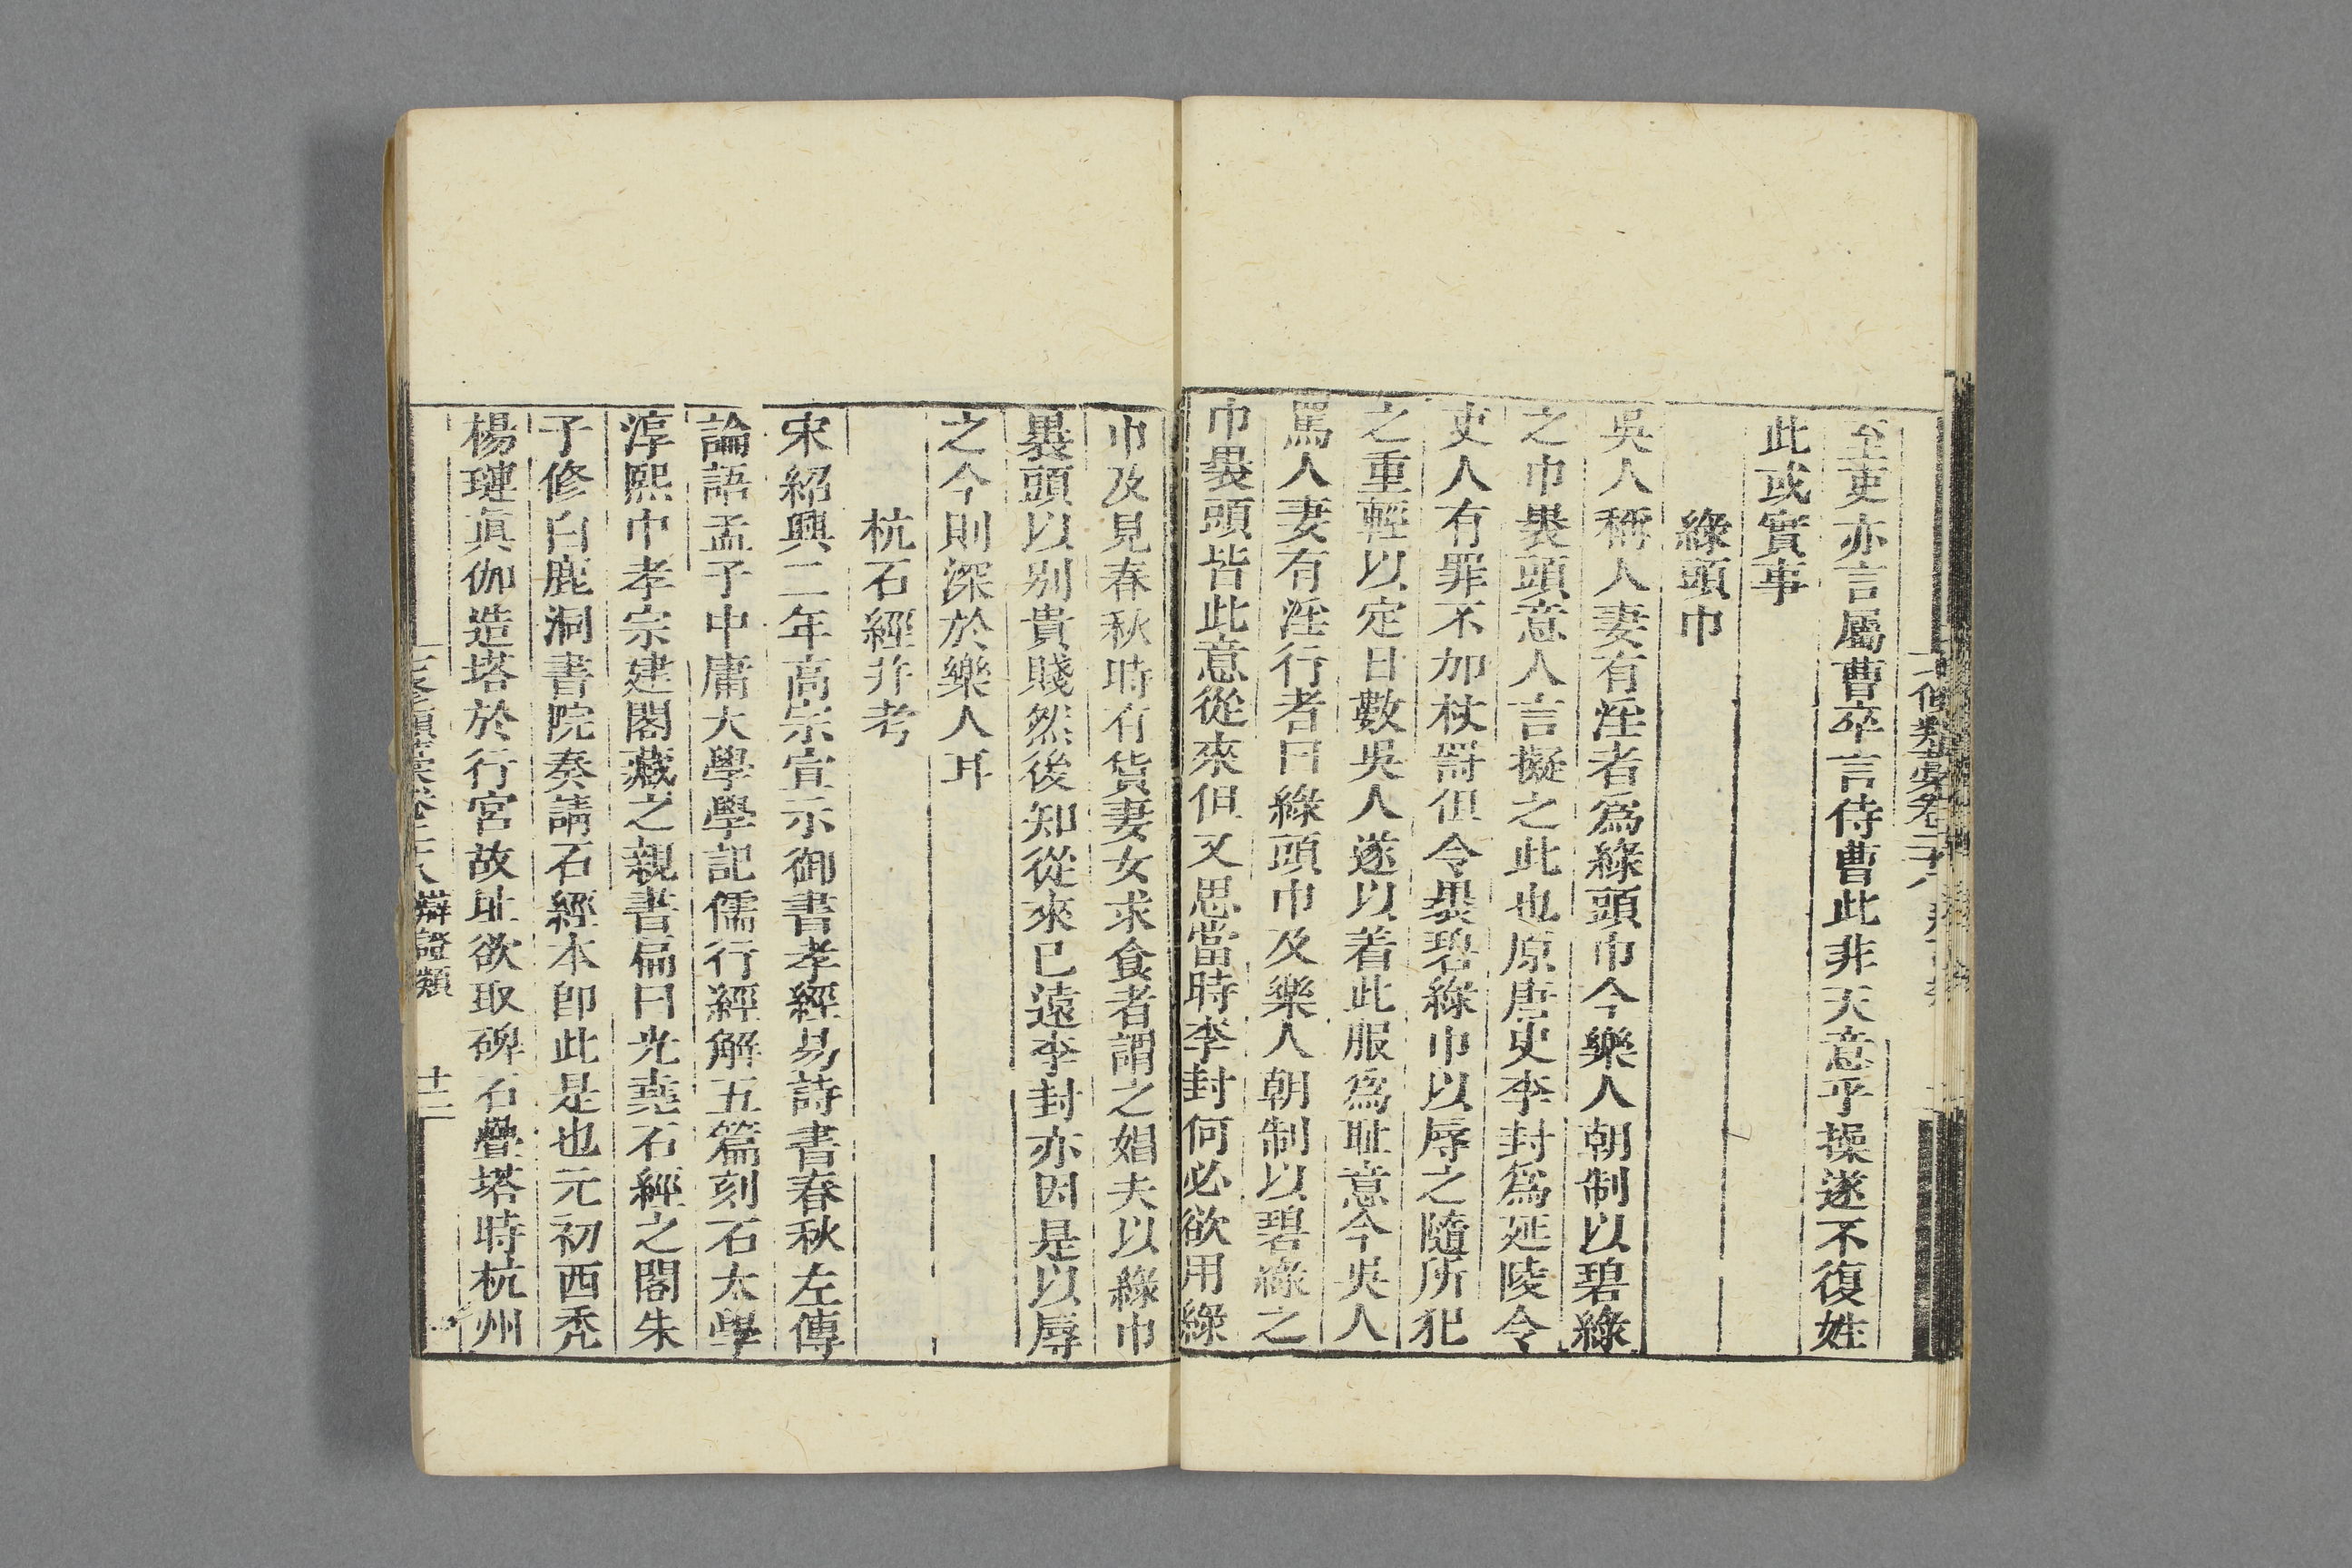 至吏亦言屬曹卒言侍曹此非天意乎操遂不復姓
此或實事
綠頭巾
吳人稱人妻有淫者爲綠頭巾今樂人朝制以碧綠
之巾裹頭意人言擬之此也原唐史李封爲延陵令
吏人有罪不加杖罰但令裹碧綠巾以辱之隨所犯
之重輕以定日數吳人遂以着此服爲耻意今吳人
罵人妻有淫行者曰綠頭巾及樂人朝制以碧綠之
巾裹頭皆此意從來但又思當時李封何必欲用綠
巾及見春秋時有貨妻女求食者謂之娼夫以綠巾
裹頭以别貴賤然後知從來已遠李封亦因是以辱
之今則深於樂人耳
杭石經并考
宋紹興二年高宗宣示御書孝經易詩書春秋左傳
論語孟子中庸大學學記儒行經解五篇刻石太學
淳熙中孝宗建閣藏之親書扁曰光堯石經之閣朱
子修白鹿洞書院奏請石經本卽此是也元初西秃
楊璉眞伽造塔於行宮故址欲取碑石疊塔時杭州
辯證類
十二